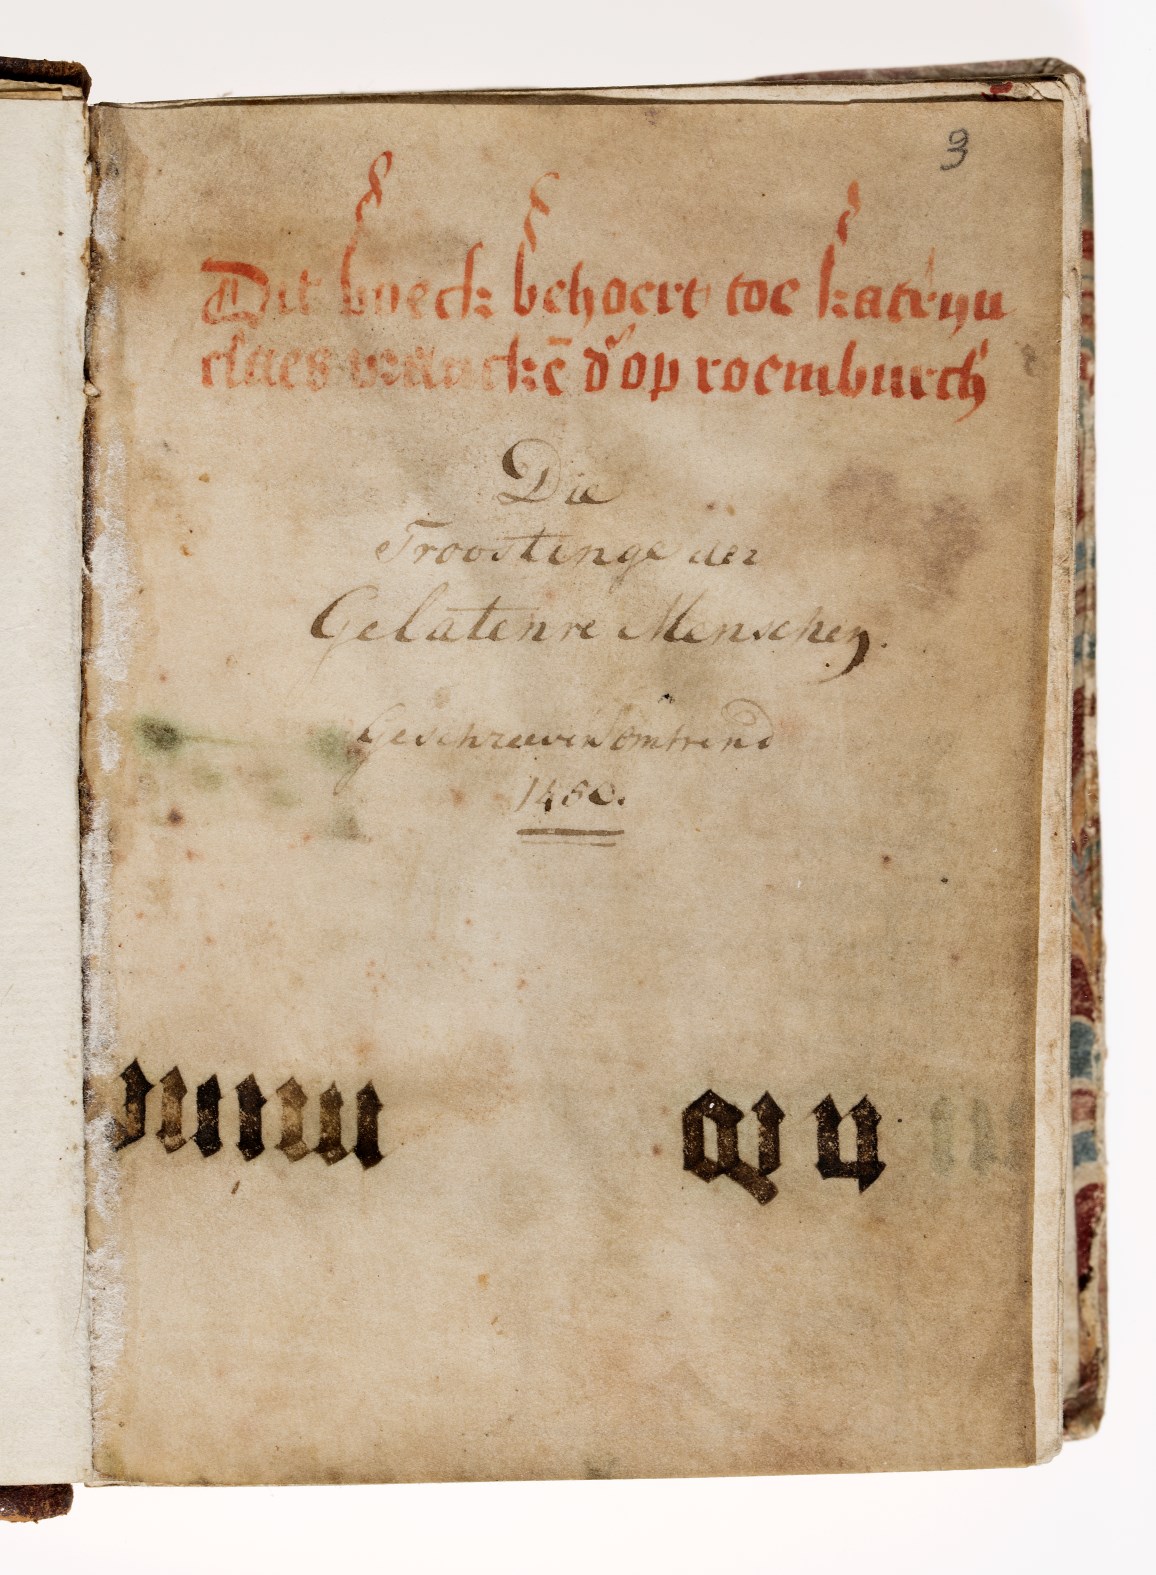 3
Dit boeck behoert toe katryn
claes dꝰ op roemburch
Die
Troostinge der
Gelatenre Menschen.
Geschreeven omtrend
1480.